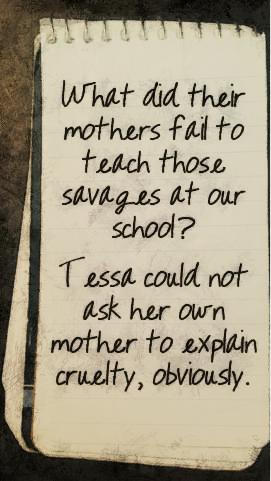 What did their
mothers fail to
teach those
savages at our
school?
Tessa could not
ask her own
mother to explain
cruelty, obviously.